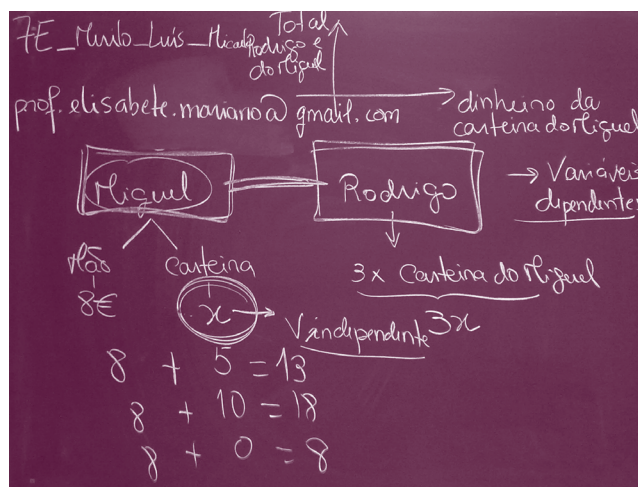 7E_Nuno_Luís_Micael
Total
Rodrigo e
do Miguel
prof.elisabete.mariano@gmail.com
dinheiro da
carteira do Miguel
Miguel
Rodrigo
→ Variáveis
dependentes
Mão
Carteira
8€
x
V independente
3x Carteira do Miguel
3x
8 + 5 = 13
8 + 10 = 18
8 + 0 = 8